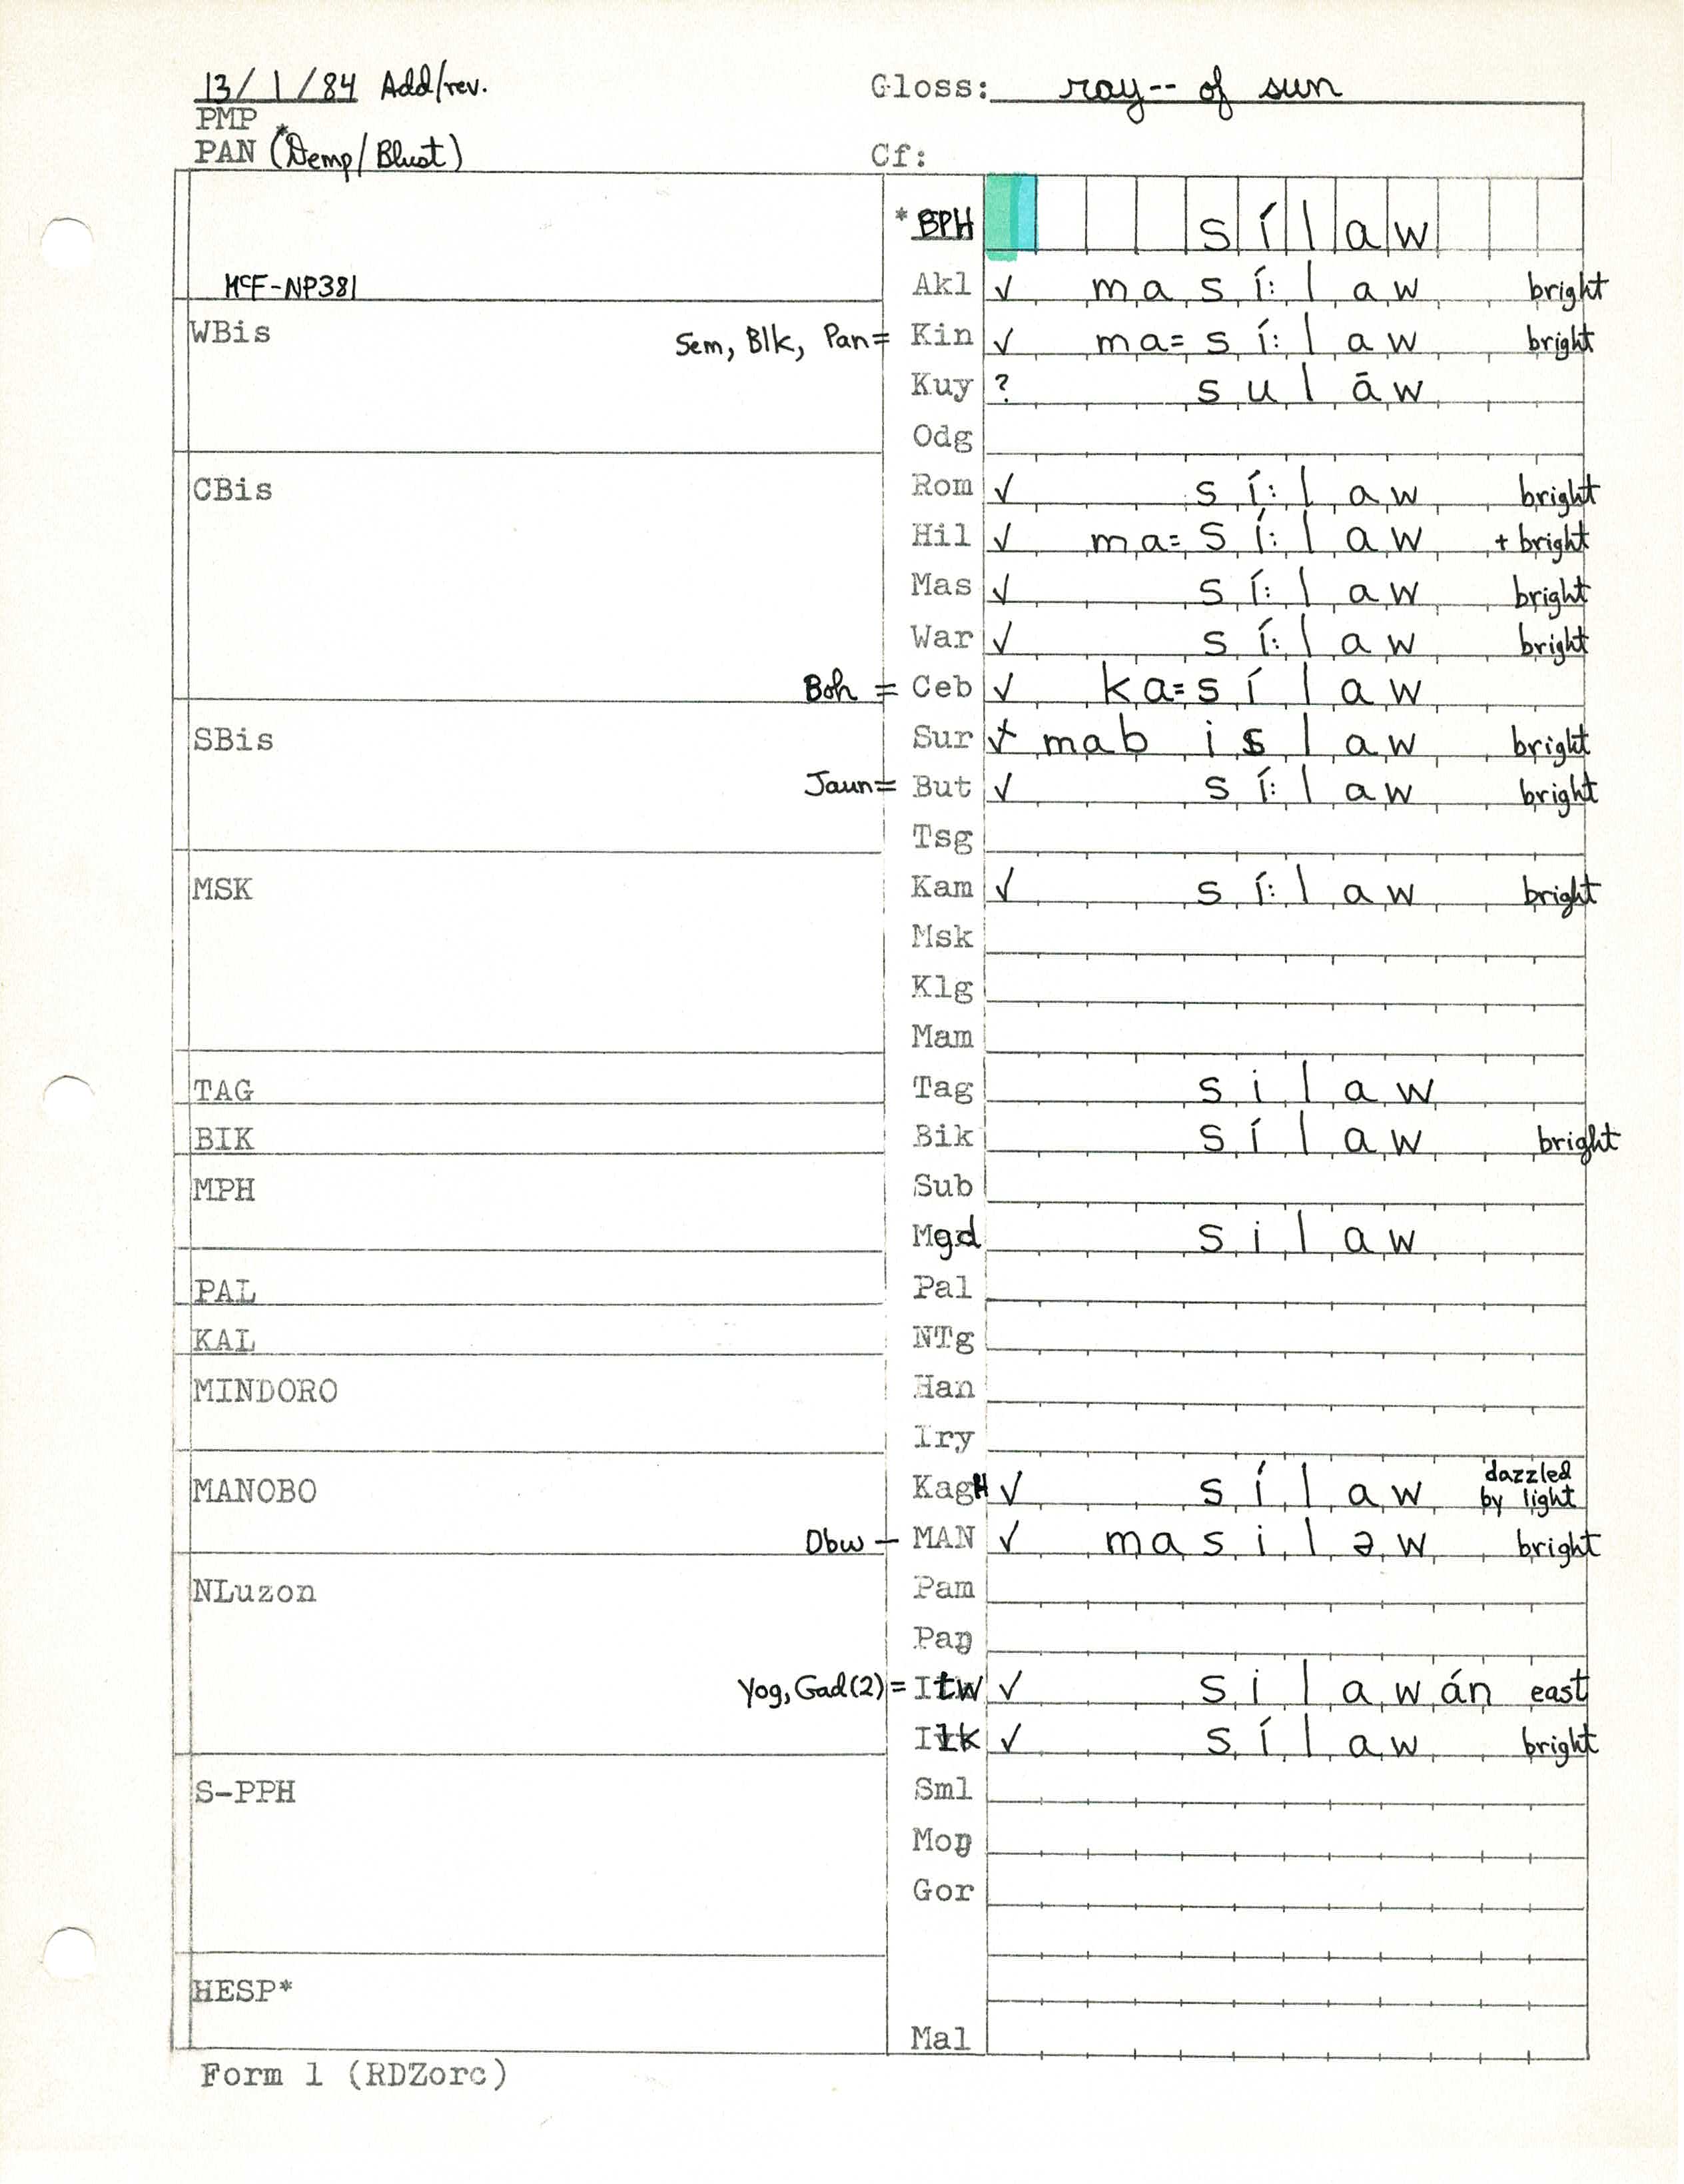 13/1/84 Add/rev. Gloss: ray-- of sun
PMP
PAN (*Demp/Blust) Cf:
*BPH sílaw
McF-NP381 Akl ✓ masí:law bright
WBis Sem, Blk, Pan= Kin ✓ ma=sí:law bright
Kuy ? sulāw
Odg
CBis Rom ✓ sí:law bright
Hil ✓ ma=sí:law + bright
Mas ✓ sí:law bright
War ✓ sí:law bright
Boh = Ceb ✓ ka=sílaw
SBis Sur mabislaw bright
Jaun= But ✓ sí:law bright
Tsg
MSK Kam ✓ sí:law bright
Msk
Klg
Mam
TAG Tag silaw
BIK Bik sílaw bright
MPH Sub
Mgd silaw
PAL Pal
KAL NTg
MINDORO Han
Iry
MANOBO KagH ✓ sílaw dazzled
by light
Obw — MAN ✓ masiləw bright
NLuzon Pam
Paŋ
Yog, Gad(2)= Itw ✓ silawán east
Ilk ✓ sílaw bright
S-PPH Sml
Moŋ
Gor
HESP*
Mal
Form 1 (RDZorc)